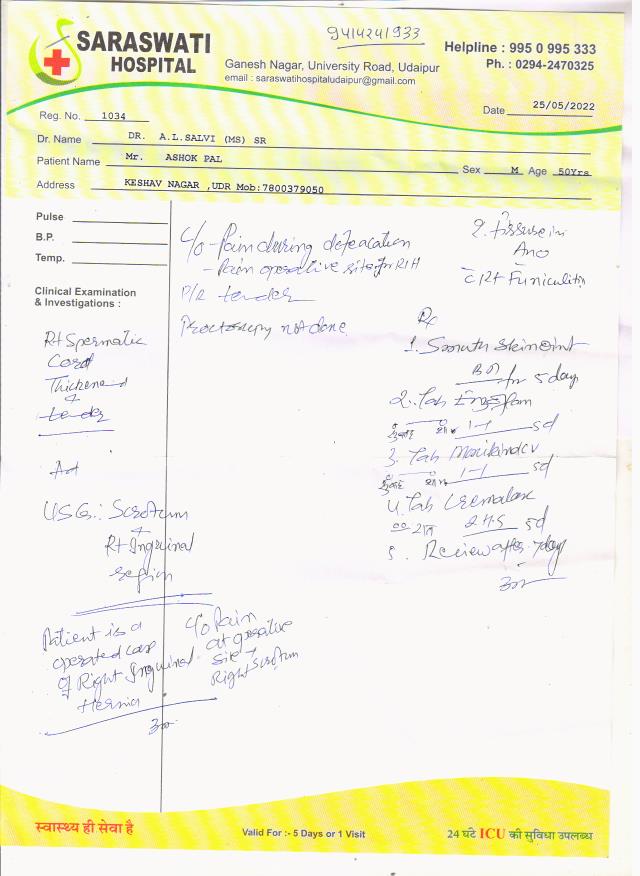 9414241933
SARASWATI
HOSPITAL
Ganesh Nagar, University Road, Udaipur
email : saraswatihospitaludaipur@gmail.com
Helpline : 995 0 995 333
Ph. : 0294-2470325
Date 25/05/2022
Reg. No. 1034
Dr. Name DR. A.L.SALVI (MS) SR
Patient Name Mr. ASHOK PAL Sex M Age 50Yrs
Address KESHAV NAGAR ,UDR Mob:7800379050
Pulse
B.P.
Temp.
Clinical Examination
& Investigations :
Rt Spermatic
Cord
Thickened
+
tender
Ad
USG: Scrotum
+
Rt Inguinal
region
Patient is a
operated case
of Right Inguinal
Hernia
C/o Pain
at operative
site +
Right Scrotum
C/o - Pain during defeacation
- Pain operative site for RIH
P/R tender
Proctoscopy not done
2. Fissure in
Ano
c Rt Funiculitis
Rx
1. Smuth Oint
BD for 5 day
2. Tab
सुबह शाम 1-1 5d
3. Tab
सुबह शाम 1-1 5d
4. Tab Cremalax
रात 2 HS 5d
5. Review after 7 day
स्वास्थ्य ही सेवा है
Valid For :- 5 Days or 1 Visit
24 घंटे ICU की सुविधा उपलब्ध